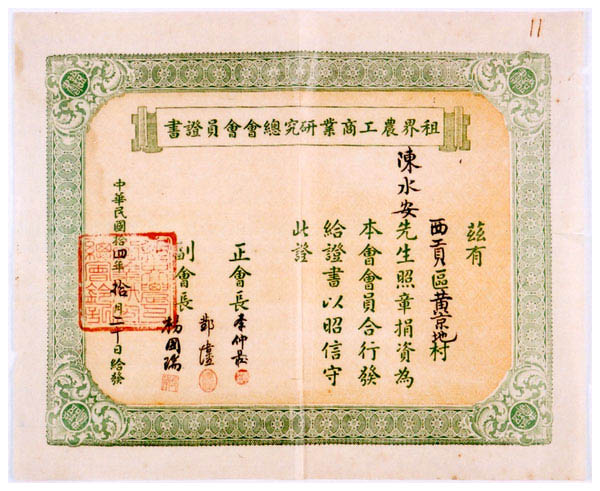 11
租界農工商業研究總會會員證書
茲有
西貢區黃京地村
陳水安先生照章捐資為
本會會員合行發
給證書以昭信守
此證
正會長李仲莊
鄧
副會長楊國瑞
中華民國拾四年拾月二十日給發